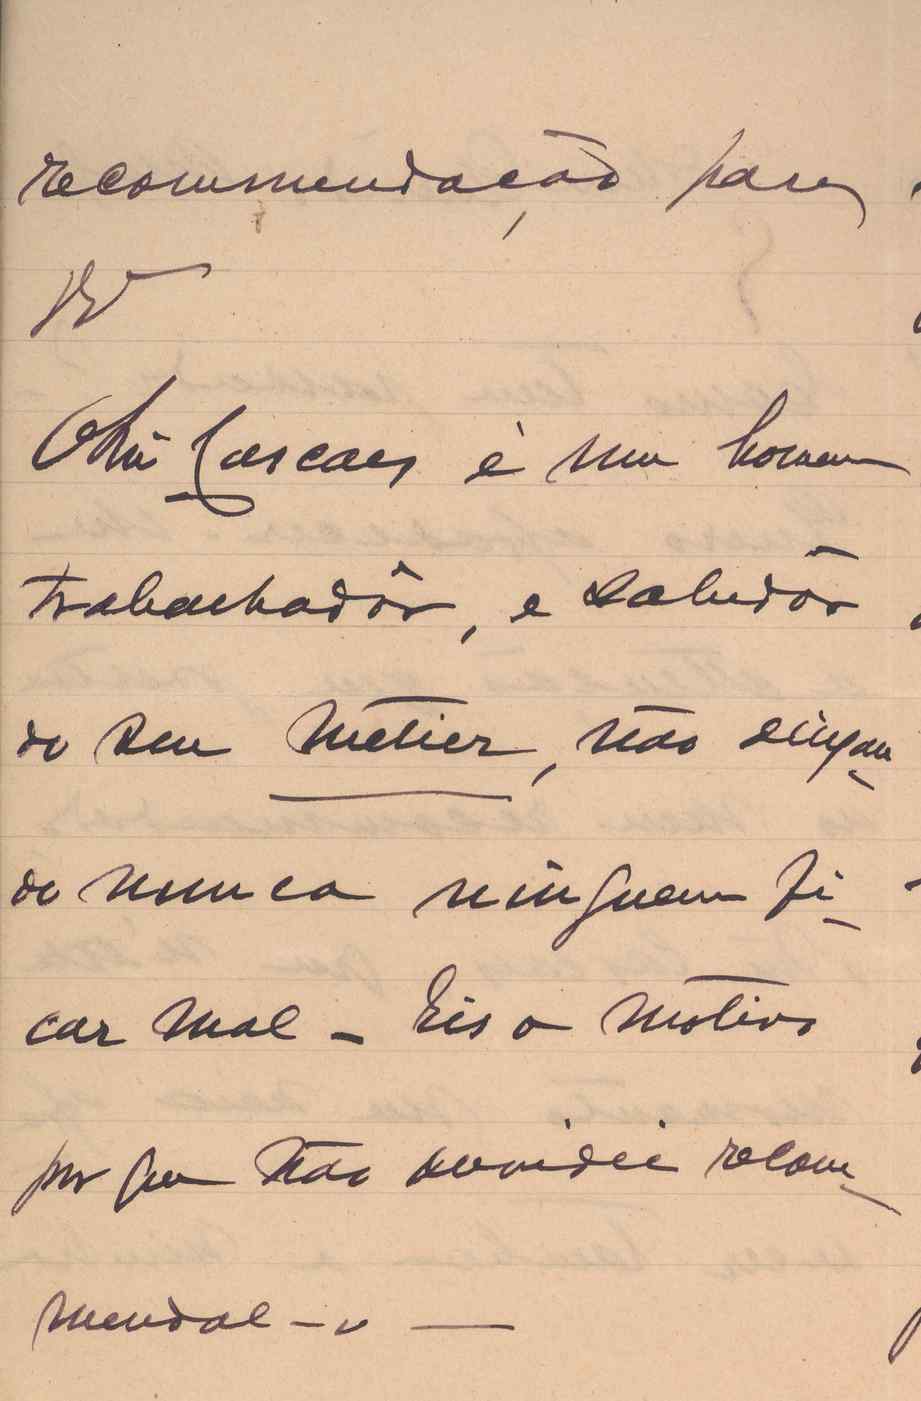 recommendação para
V.
O Snr Cascaes é um homem
trabalhadôr, e sabedôr
do seu métier, não deixan-
do nunca ninguem fi-
car mal – Eis o motivo
por que não duvidei recom-
mendal-o —